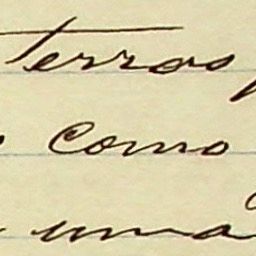 terras
como
uma